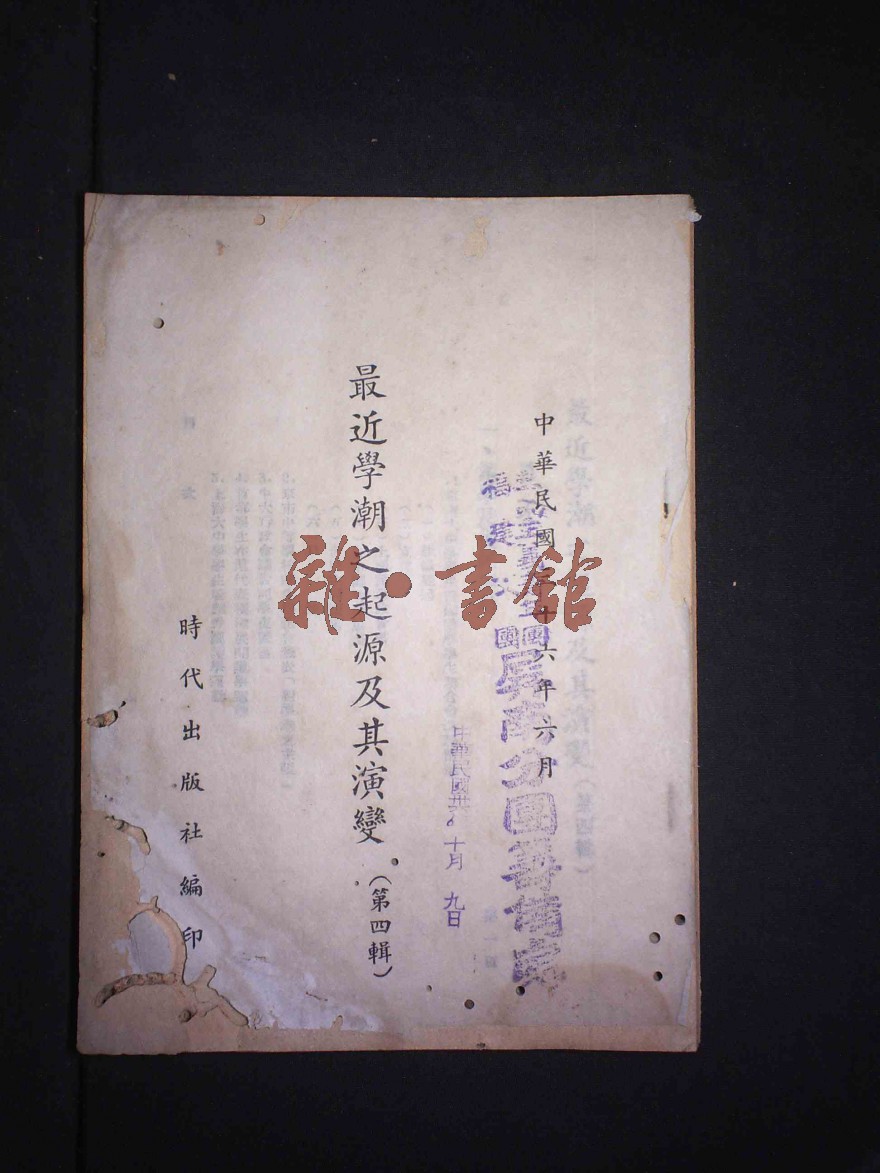 中華民國三十六年六月
最近學潮之起源及其演變（第四輯）
時代出版社編印
福建
中華民國卅六 十月 九日
雜·書館